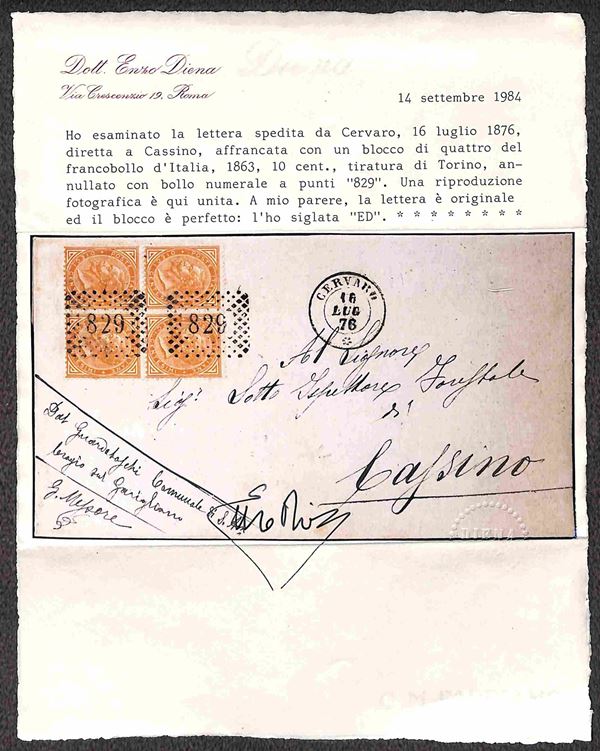 Dott. Enzo Diena
Via Crescenzio 19, Roma
14 settembre 1984
Ho esaminato la lettera spedita da Cervaro, 16 luglio 1876,
diretta a Cassino, affrancata con un blocco di quattro del
francobollo d'Italia, 1863, 10 cent., tiratura di Torino, an-
nullato con bollo numerale a punti "829". Una riproduzione
fotografica è qui unita. A mio parere, la lettera è originale
ed il blocco è perfetto: l'ho siglata "ED". * * * * * * * *
829 829
CERVARO
16
LUG
76
Al Signore
Sig.r Sotto Ispettore Forestale
di
Cassino
Dal Guardaboschi Comunale di S.
sul Garigliano
G. Messore
DIENA